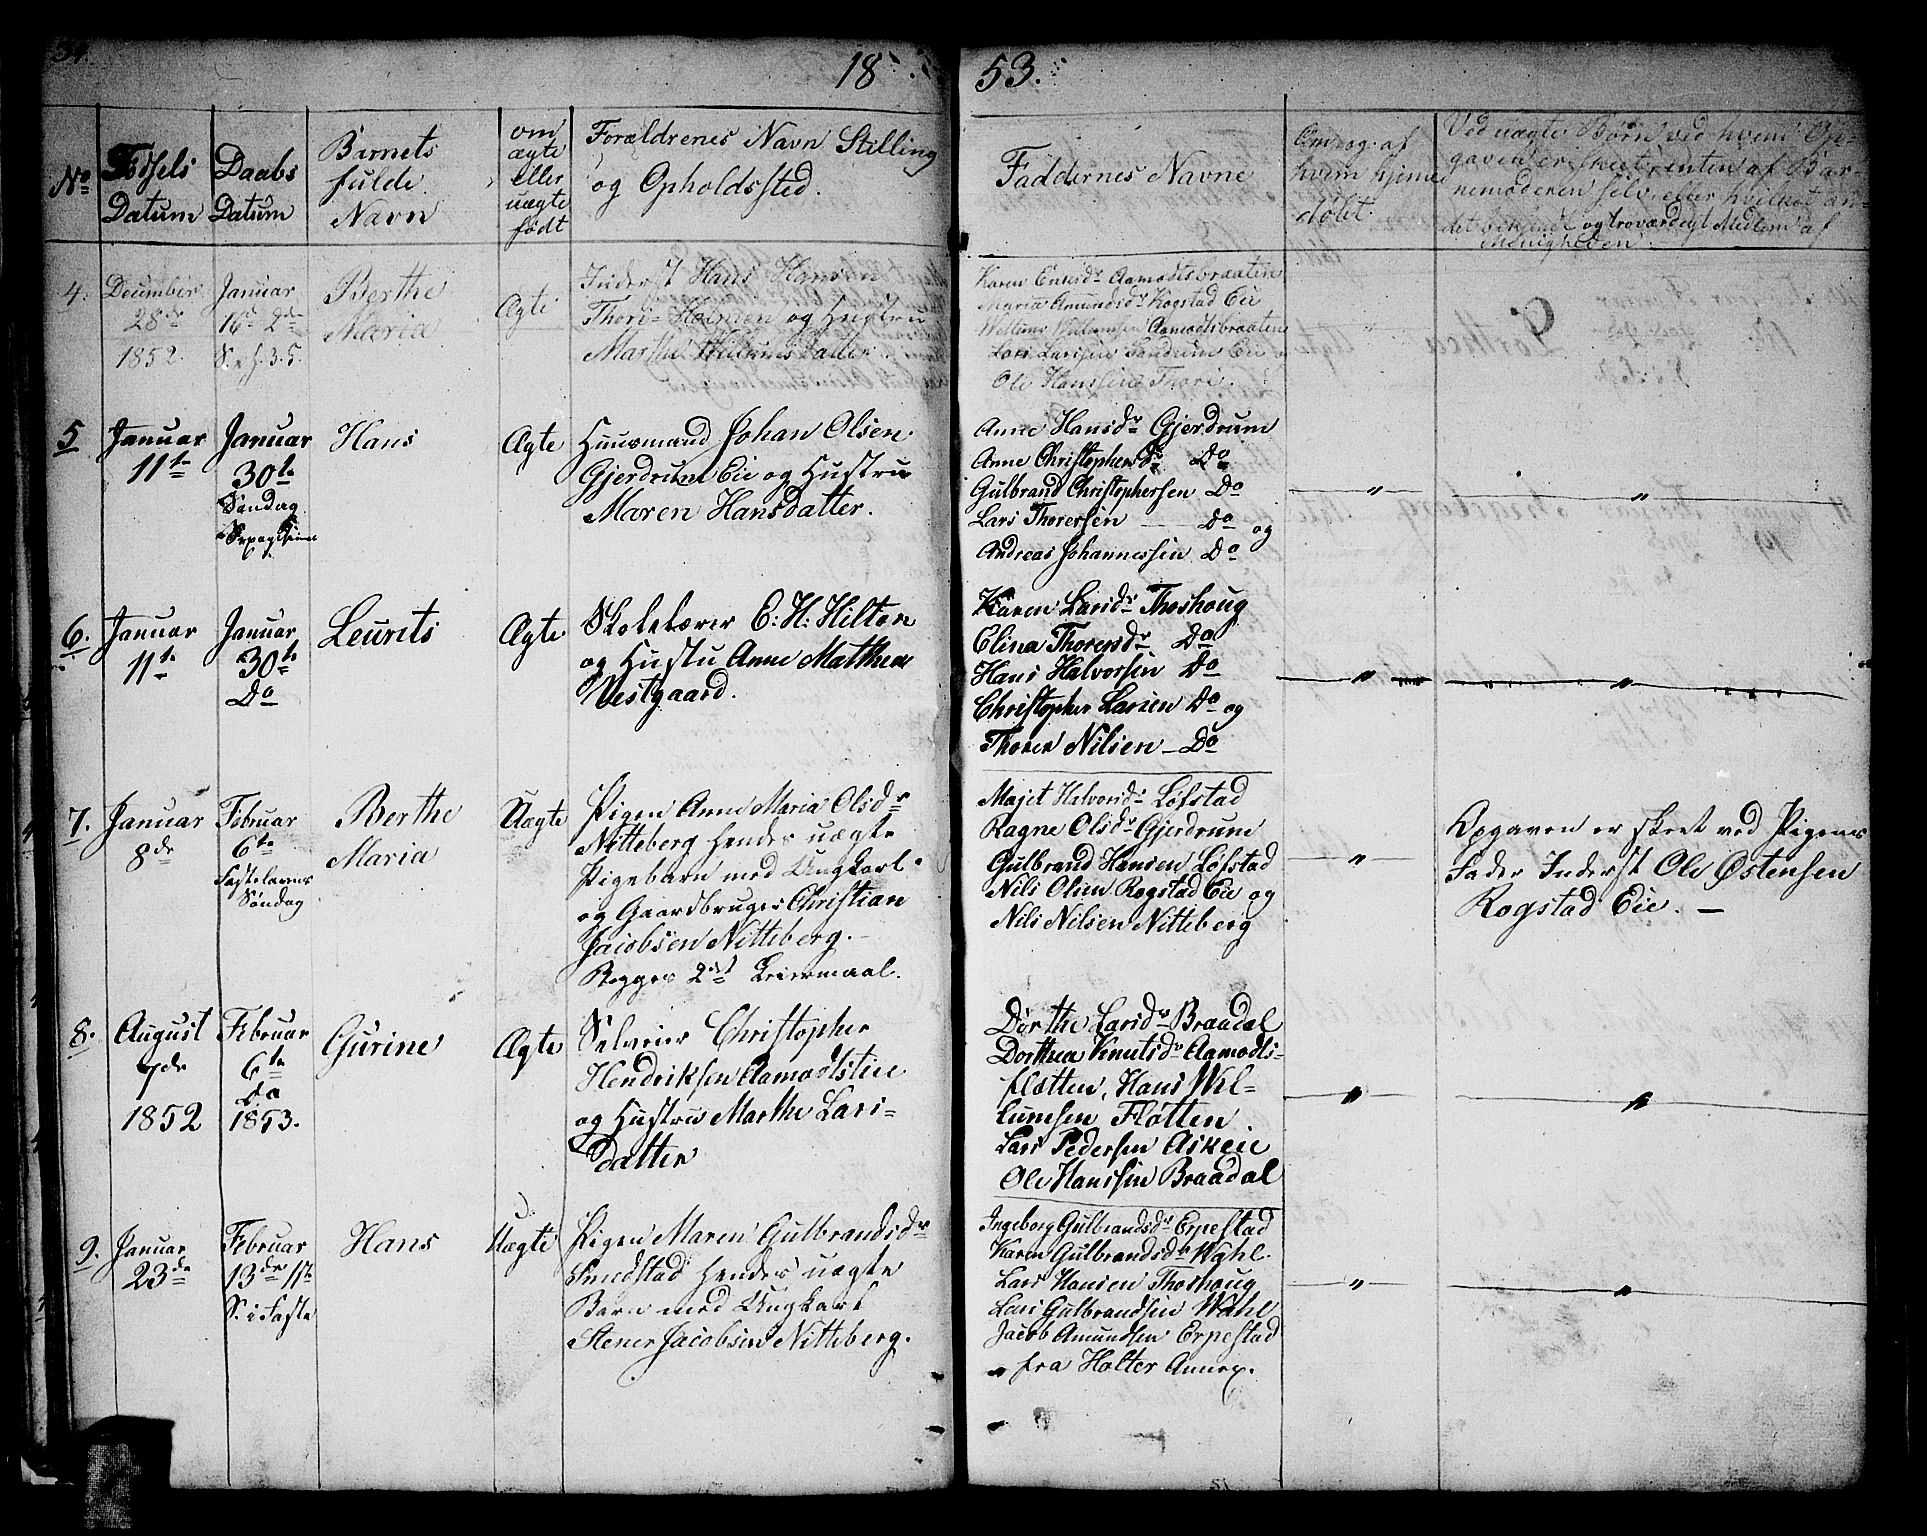 34.
18 53.
No
Fødsels
Datum
Daabs
Datum
Barnets
fulde
Navn
om
ægte
eller
uægte
født
Forældrenes Navn Stilling
og Opholdssted.
Faddernes Navne
Om og af
hvem hjemme
døbt.
Ved uægte Børn ved hvem Op-
gaven er skeet enten af Bar-
nemoderen selv, eller hvilket an-
det bekjendt og troværdigt Medlem af
Menigheden
4.
December
28de
1852.
Januar
16de 2de
S. e. h. 3. K.
Berthe
Maria
Ægte
Inderst Hans Hansen
Thori Holmen og Hustru
Marthe Willumsdatter
Karen Ericsdr Aamodtsbraaten
Maria Amundsdr Rogstad Eie
Willums Willumsen Aamodtsbraaten
Lars Larssen Sandrum Eie
Ole Hanssen Thori.
5
Januar
11te
Januar
30te
Søndag
Sexagesima
Hans
Ægte
Huusmand Johan Olsen
Gjerdrum Eie og Hustru
Maren Hansdatter.
Anne Hansdr Gjerdrum
Anne Christophersdr Do
Gulbrand Christophersen Do
Lars Thorersen Do og
Andreas Johannessen Do
— " —
— " —
6.
Januar
11te
Januar
30te
Do
Leurits
Ægte
Skolelærer E. H. Hilton
og Hustu Anne Mathea
Vestgaard.
Karen Larsdr Thoshoug
Elina Thorersdr Do
Hans Halvorsen Do
Christopher Larsen Do og
Thorer Nilsen Do
— " —
— " —
7.
Januar
8de
Februar
6te
Fastelavens
Søndag
Berthe
Maria
Uægte
Pigen Anne Maria Olsdr
Nitteberg hendes uægte
Pigebarn med Ungkarl
og Gaardbruger Christian
Jacobsen Nitteberg.
Begges 2det Leiermaal.
Majet Halvorsdr Løfstad
Ragne Olsdr Gjerdrum
Gulbrand Hansen Løfstad
Nils Olsen Rogstad Eie og
Nils Nilsen Nitteberg
— " —
Opgaven er skeet ved Pigens
Fader Inderst Ole Østensen
Rogstad Eie. —
8.
August
7de
1852
Februar
6te
Do
1853.
Gurine
Ægte
Selveier Christopher
Hendriksen Aamodtstien
og Hustru Marthe Lars-
datter
Dørthe Larsdr Braadal
Dorthea Knutsdr Aamodts-
fløtten, Hans Wil-
lumsen Fløtten
Lars Pedersen Askeie
Ole Hanssen Braadal
— " —
— " —
9.
Januar
23de
Februar
13de 1ste
S. i Faste
Hans
Uægte
Pigen Maren Gulbrandsdr
Smedstad hendes uægte
Barn med Ungkarl
Stener Jacobsen Nitteberg.
Ingeborg Gulbrandsdr Erpestad
Karen Gulbrandsdr Wahl
Lars Hansen Thoshoug
Lars Gulbrandsen Wahl
Jacob Amundsen Erpestad
fra Holter Annex.
— " —
— " —